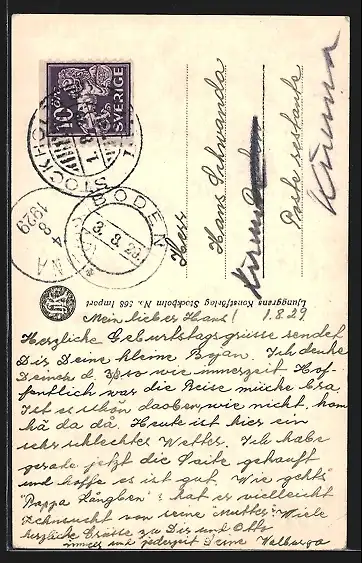 10 ÖRE
SVERIGE
STOCKHOLM
1. 8.
BODEN
3. 8. 29.
KIRUNA
4 8
1929
Herr
Hans Schwanda
Kiruna
Boden
Poste restante
Kiruna
Ljunggrens Konstförlag Stockholm No. 568 Import
1.8.29
Mein lieber Hans!
Herzliche Geburtstagsgrüsse sendet
Dir Deine kleine Bryan. Ich denke
Deiner d. 3/8 so wie immerzeit. Hof-
fentlich war die Reise nicht
Ist es schön daoben, wie nicht, kom
hä da då. Heute ist hier ein
sehr schlechtes Wetter. Ich habe
gerade jetzt die Saite gekauft
und hoffe es ist gut. Wie gehts
"Pappa Längben": hat er vielleicht
Zehnsucht von seine "Mutter". Viele
herzliche Grüsse zu Dir und Otto
immer und jederzeit Deine Walborga